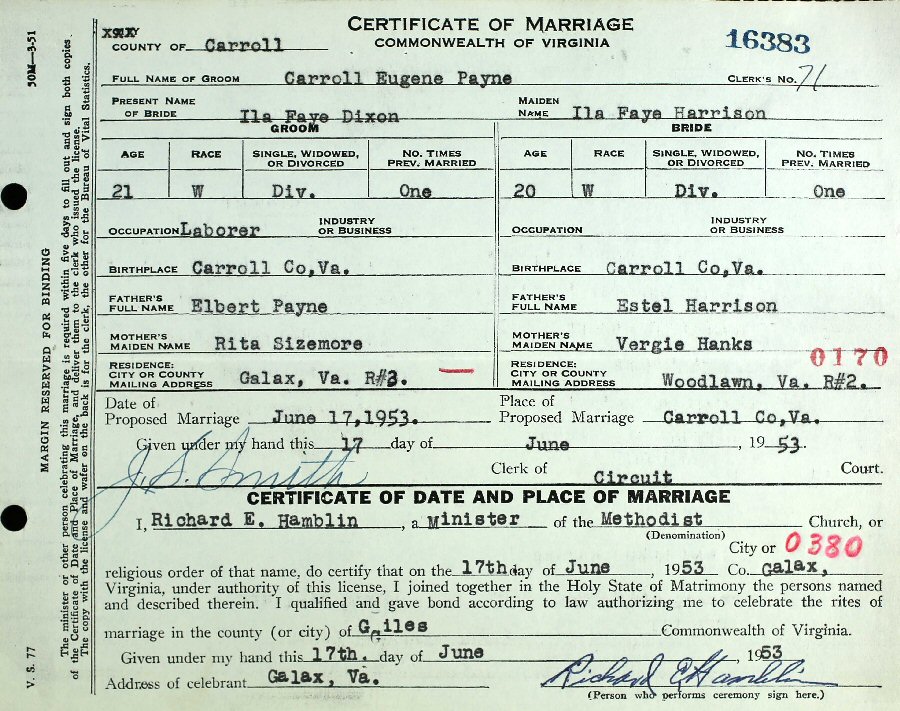 CERTIFICATE OF MARRIAGE
COMMONWEALTH OF VIRGINIA
16383
COUNTY OF Carroll
FULL NAME OF GROOM Carroll Eugene Payne CLERK'S NO. 71
PRESENT NAME OF BRIDE Ila Faye Dixon MAIDEN NAME Ila Faye Harrison
GROOM BRIDE
AGE RACE SINGLE, WIDOWED, OR DIVORCED NO. TIMES PREV. MARRIED AGE RACE SINGLE, WIDOWED, OR DIVORCED NO. TIMES PREV. MARRIED
21 W Div. One 20 W Div. One
OCCUPATION Laborer INDUSTRY OR BUSINESS OCCUPATION INDUSTRY OR BUSINESS
BIRTHPLACE Carroll Co,Va. BIRTHPLACE Carroll Co,Va.
FATHER'S FULL NAME Elbert Payne FATHER'S FULL NAME Estel Harrison
MOTHER'S MAIDEN NAME Rita Sizemore MOTHER'S MAIDEN NAME Vergie Hanks
0170
RESIDENCE: CITY OR COUNTY MAILING ADDRESS Galax, Va. R#3. RESIDENCE: CITY OR COUNTY MAILING ADDRESS Woodlawn, Va. R#2.
Date of Proposed Marriage June 17,1953. Place of Proposed Marriage Carroll Co,Va.
Given under my hand this 17 day of June, 1953.
J. S. Smith Clerk of Circuit Court.
CERTIFICATE OF DATE AND PLACE OF MARRIAGE
I, Richard E. Hamblin, a Minister of the Methodist Church, or
(Denomination)
City or 0380
religious order of that name, do certify that on the 17th day of June, 1953 Co. Galax,
Virginia, under authority of this license, I joined together in the Holy State of Matrimony the persons named
and described therein. I qualified and gave bond according to law authorizing me to celebrate the rites of
marriage in the county (or city) of Giles Commonwealth of Virginia.
Given under my hand this 17th. day of June, 1953
Address of celebrant Galax, Va. Richard E Hamblin
(Person who performs ceremony sign here.)
V. S. 77
MARGIN RESERVED FOR BINDING
50M—3-51
The minister or other person celebrating this marriage is required within five days to fill out and sign both copies
of the Certificate of Date and Place of Marriage, and deliver them to the clerk who issued the license.
The copy with the license and wafer on the back is for the clerk, the other for the Bureau of Vital Statistics.